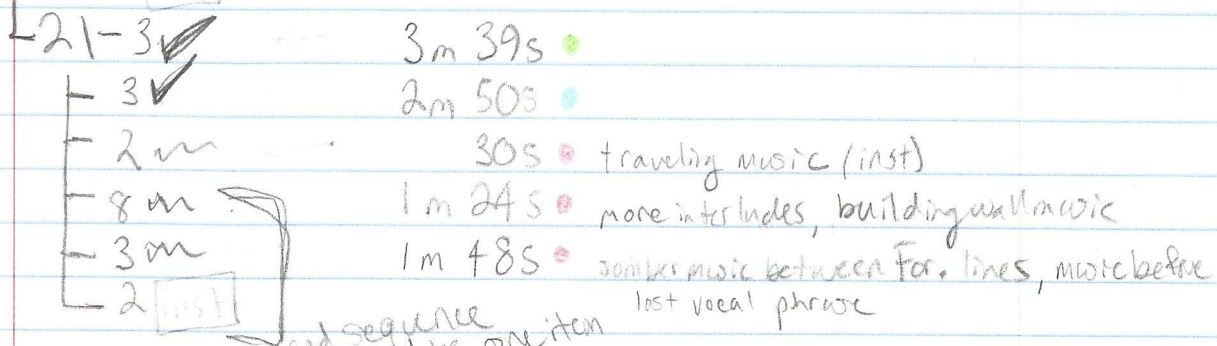 21-3 ✓ 3m 39s
3 ✓ 2m 50s
2m 30s traveling music (inst)
8m 1m 24s more interludes, building wall music
3m 1m 48s somber music between For. lines, music before
2 inst last vocal phrase
end sequence
one item